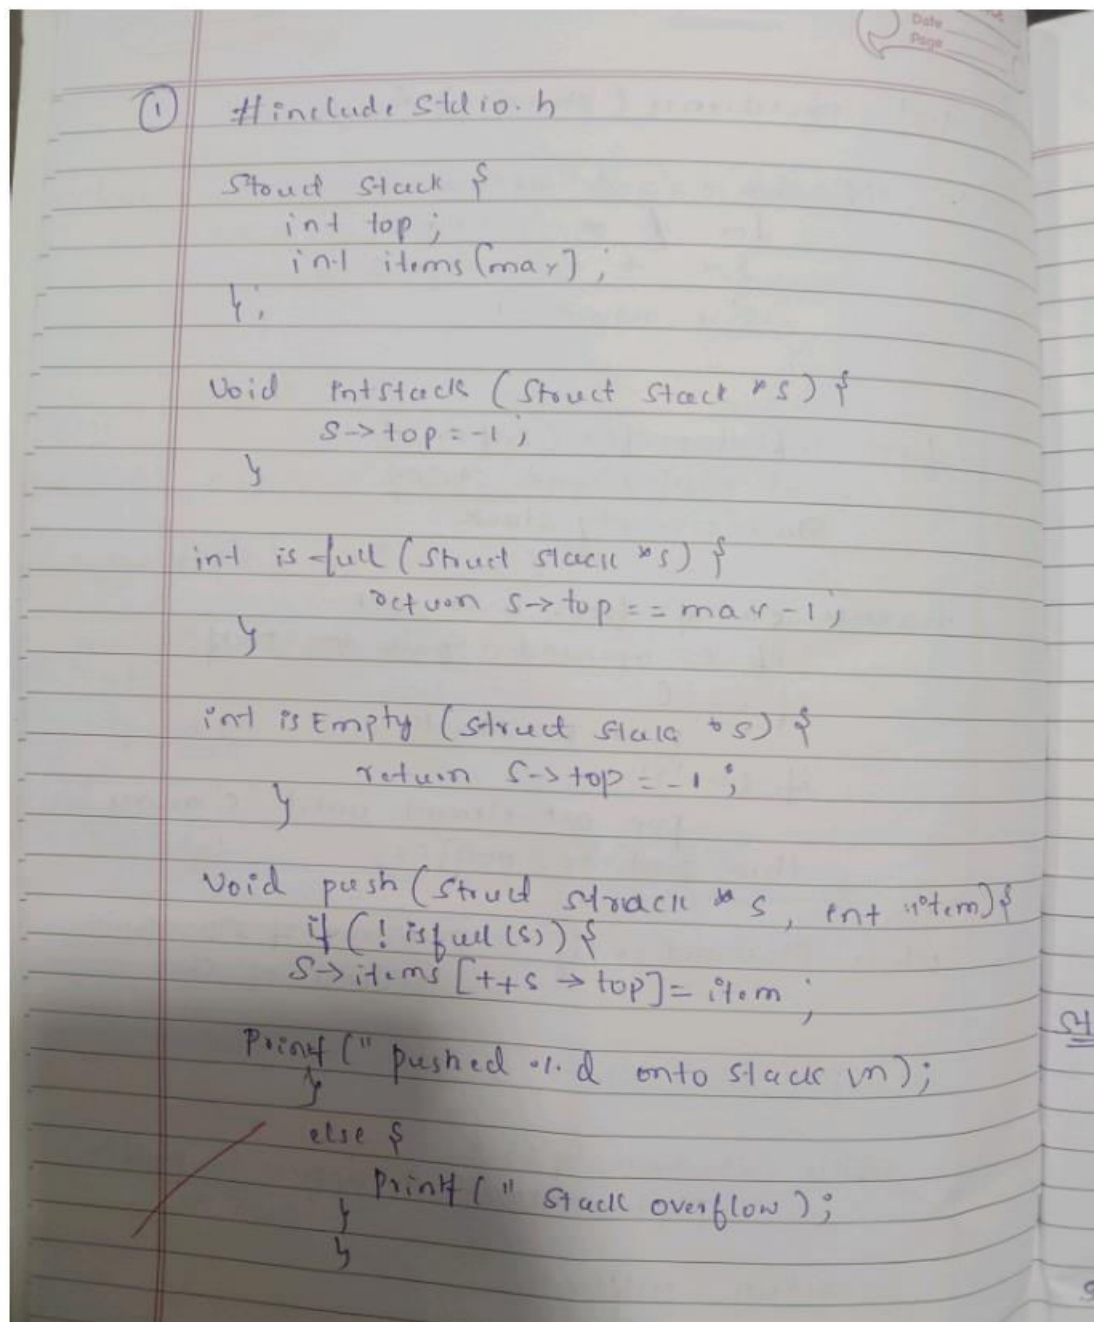 Date
Page
① #include stdio.h
Struct Stack {
int top;
int items[max];
};
Void intstack (Struct Stack *s) {
s->top=-1;
}
int isfull (Struct Stack *s) {
return s->top==max-1;
}
int isEmpty (Struct Stack *s) {
return s->top=-1;
}
Void push (Struct Strack *s, int item){
if (! isfull (s)) {
S->items [++s->top]=item;
Printf (" pushed %d onto stack \n);
}
else {
Printf (" Stack overflow);
}
}